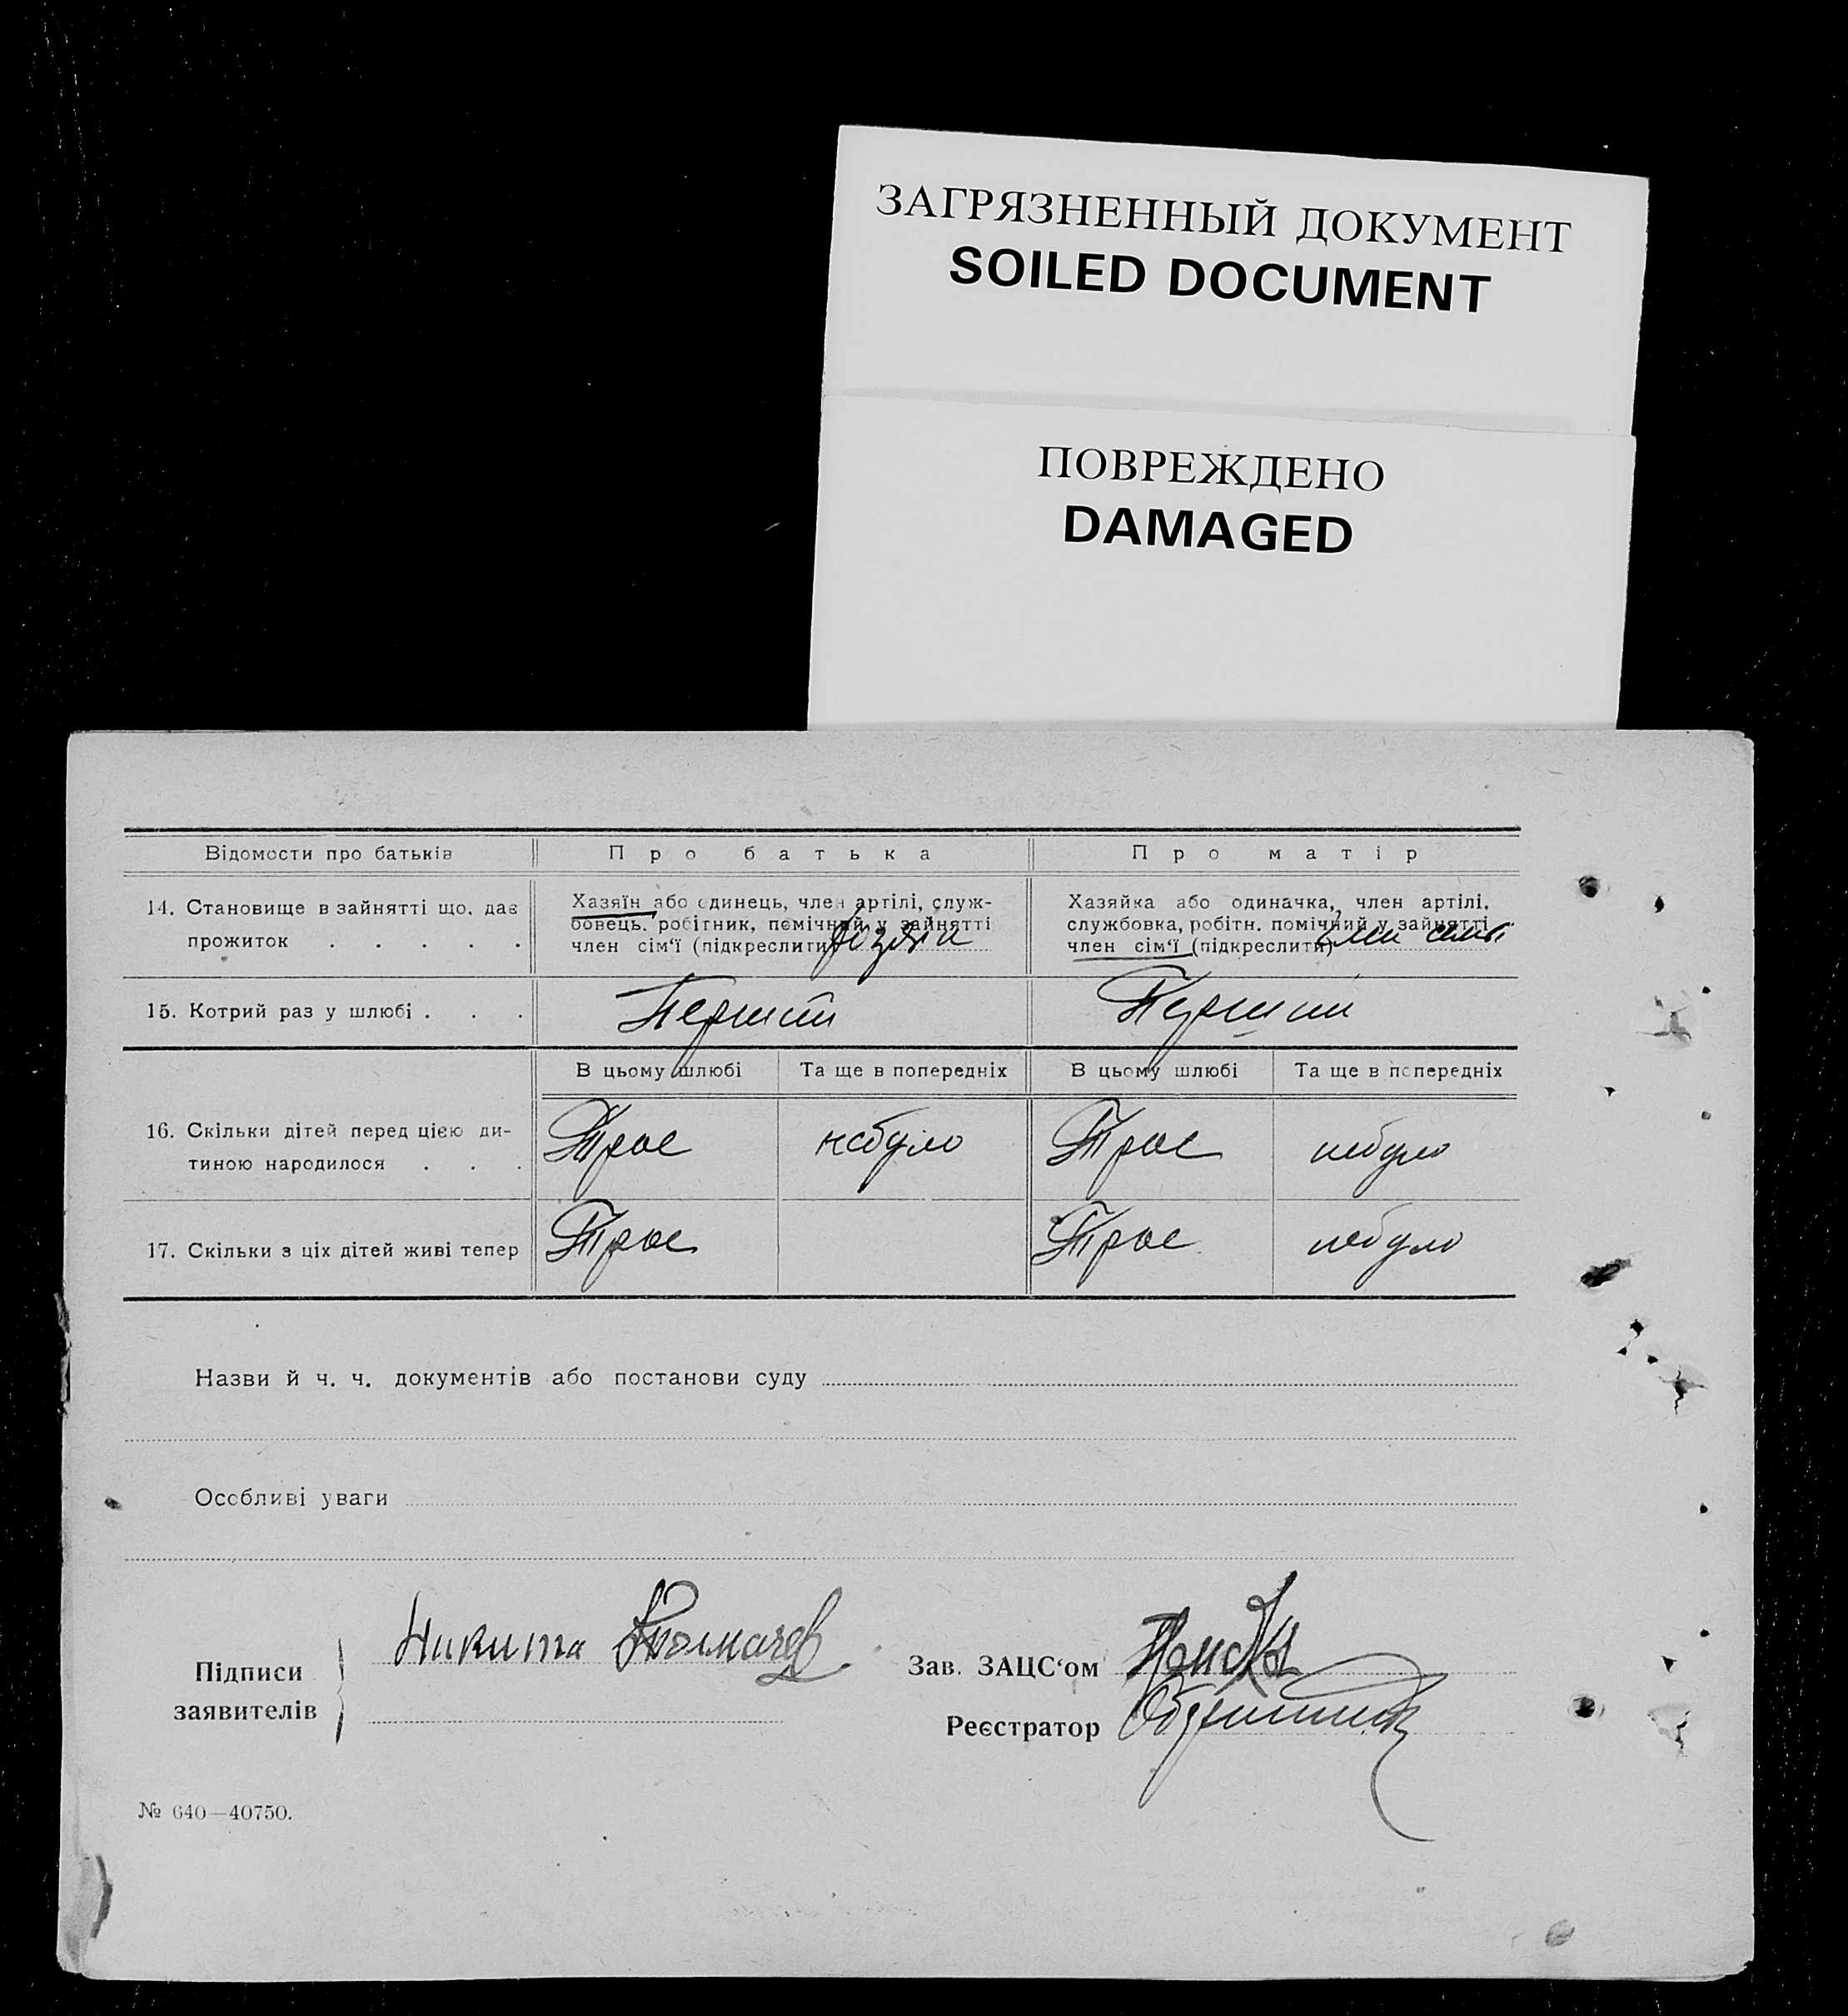 ЗАГРЯЗНЕННЫЙ ДОКУМЕНТ
SOILED DOCUMENT
ПОВРЕЖДЕНО
DAMAGED
Відомости про батьків Про батька Про матір
14. Становище в зайнятті що, дає прожиток . . . . .
Хазяїн або одинець, член артілі, служ-
бовець. робітник, помічний у зайнятті
член сім‘ї (підкреслити) хозяїн
Хазяйка або одиначка, член артілі,
службовка, робітн. помічний у зайнятті
член сім‘ї (підкреслити) член сімї
15. Котрий раз у шлюбі . . . Перший Перший
В цьому шлюбі Та ще в попередніх В цьому шлюбі Та ще в попередніх
16. Скільки дітей перед цією ди-
тиною народилося . . . Трое небуло Трое небуло
17. Скільки з ціх дітей живі тепер Трое Трое небуло
Назви й ч. ч. документів або постанови суду
Особливі уваги
Підписи
заявителів
Никита
Зав. ЗАЦС‘ом
Реєстратор
№ 640—40750.